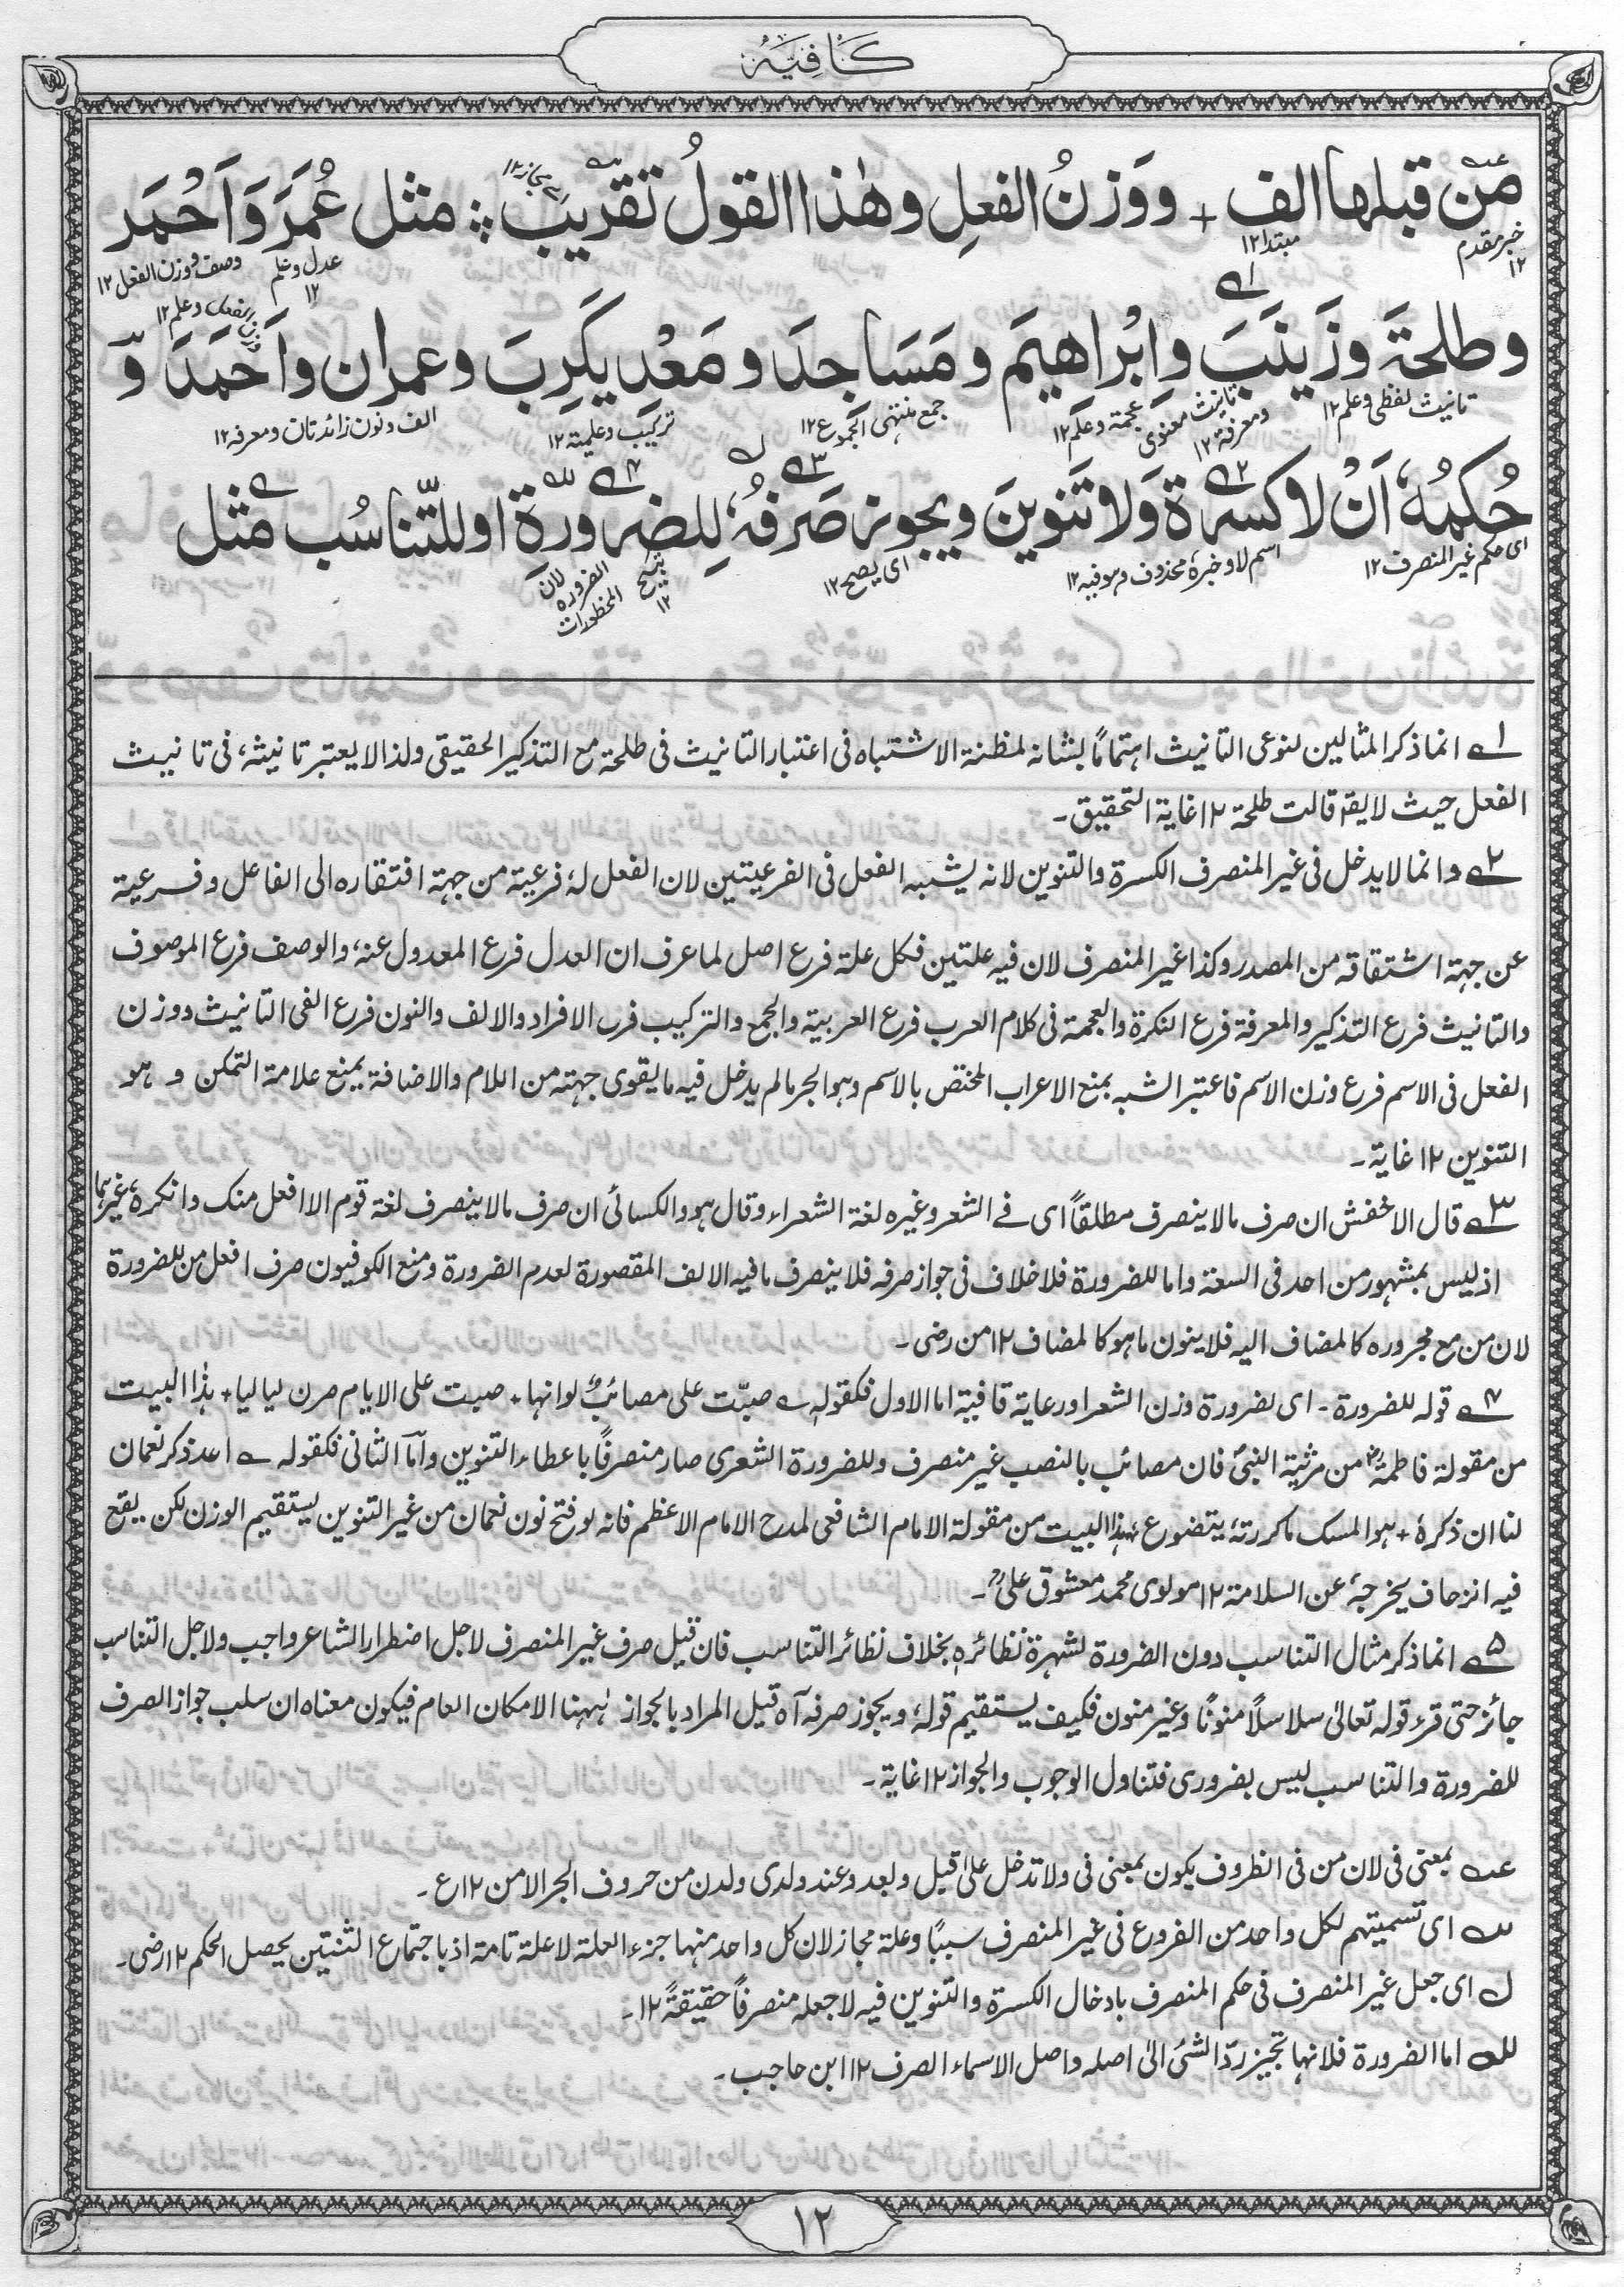 كَافِيَه
مِنْ قبلها الف + ووَزنُ الفعلِ وهٰذا القولُ تقرِيبٌ ؞ مثل عُمَرَ وَاَحْمَر
اے مجاز۱۲
خبر مقدم ۱۲
مبتدا۱۲
عدل وعلم ۱۲
وصف ووزن الفعل ۱۲
وطلحةَ وزَينَبَ وابْراهيمَ ومَسَاجِدَ ومَعْدِيكَرِبَ وعمران واَحْمَدَ وّ
وزن الفعل وعلم ۱۲
تانيث لفظى وعلم ۱۲
تانيث معنوى ومعرفة ۱۲
عجمة وعلم ۱۲
جمع منتهى الجموع ۱۲
تركيب وعلمية ۱۲
الف ونون زائدتان ومعرفه ۱۲
حُكمُهٗ اَنْ لا كسرةَ وَلا تَنوينَ ويجوز صَرفُهٗ لِلضرورةِ او للتّناسُب مثل
اى حكم غير المنصرف ۱۲
اسم لا وخبرهٗ محذوف وهو فيه ۱۲
اى يصح ۱۲
لان الضروره تبيح المحظورات ۱۲
۱ے انما ذكر المثالين لنوعى التانيث اهتمامًا بشانه لمظنة الاشتباه فى اعتبار التانيث فى طلحة مع التذكير الحقيقى ولذا لا يعتبر تانيثه، فى تانيث
الفعل حيث لا يقہ قالت طلحة ۱۲ غاية التحقيق۔
۲ے وانما لا يدخل فى غير المنصرف الكسرة والتنوين لانه يشبه الفعل فى الفرعيتين لان الفعل لهٗ فرعية من جهة افتقاره الى الفاعل وفرعية
عن جهة اشتقاقه من المصدر وكذا غير المنصرف لان فيه علتين فكل علة فرع اصل لما عرف ان العدل فرع المعدول عنه، والوصف فرع الموصوف
والتانيث فرع التذكير والمعرفة فرع النكرة والعجمة فى كلام العرب فرع العربية والجمع والتركيب فرع الافراد والالف والنون فرع الفى التانيث ووزن
الفعل فى الاسم فرع وزن الاسم فاعتبر الشبه بمنع الاعراب المختص بالاسم وهو الجر مالم يدخل فيه ما يقوى جهته من اللام والاضافة يمنع علامة التمكن و هو
التنوين ۱۲ غاية۔
۳ے قال الاخفش ان صرف مالا ينصرف مطلقًا اى فے الشعر وغيره لغة الشعراء وقال هو والكسائى ان صرف مالا ينصرف لغة قوم الا افعل منك وانكره، غيرهما
اذ ليس بمشهور من احد فى السعة واما للضرورة فلا خلاف فى جواز صرفه فلا ينصرف ما فيه الالف المقصورة لعدم الضرورة ومنع الكوفيون صرف افعل من للضرورة
لان من مع مجروره كالمضاف اليه فلا ينون ما هو كالمضاف ۱۲ من رضى۔
۴ے قوله للضرورة۔ اى لضرورة وزن الشعر او رعاية قافية اما الاول فكقولهٖ ے صبّت على مصائبٌ لو انها ٭ صبت على الايام صرن لياليا ٭ هٰذا البيت
من مقولة فاطمةؓ من مرثية النبىؐ فان مصائب بالنصب غير منصرف وللضرورة الشعرى صار منصرفًا باعطاء التنوين وامّا الثانى فكقوله ے اعد ذكر نعمان
لنا ان ذكرهٗ ٭ هو المسك ما كررتهٗ يتضوع ٭ هٰذا البيت من مقولة الامام الشافعى لمدح الامام الاعظم فانه لو فتح نون نعمان من غير التنوين يستقيم الوزن لكن يقع
فيه انزحاف يخرجهٗ عن السلامة ۱۲ مولوى محمد معشوق علىؒ۔
۵ے انما ذكر مثال التناسب دون الضرورة لشهرة نظائرهٖ بخلاف نظائر التناسب فان قيل صرف غير المنصرف لاجل اضطرار الشاعر واجب ولاجل التناسب
جائز حتى قرء قوله تعالىٰ سلاسلًا منونًا وغير منون فكيف يستقيم قولهٗ ويجوز صرفه آه قيل المراد بالجواز هٰهنا الامكان العام فيكون معناه ان سلب جواز الصرف
للضرورة والتناسب ليس بضرورى فتناول الوجوب والجواز ۱۲ غاية۔
عہ بمعنى فى لان من فى الظروف يكون بمعنى فى ولا تدخل علىٰ قبل وبعد وعند ولدى ولدن من حروف الجر الا من ۱۲ ع۔
سہ اى تسميتهم لكل واحد من الفروع فى غير المنصرف سببًا وعلة مجاز لان كل واحد منها جزء العلة لا علة تامة اذ باجتماع اثنتين يحصل الحكم ۱۲ رضى۔
ل اى جعل غير المنصرف فى حكم المنصرف بادخال الكسرة والتنوين فيه لا جعله منصرفًا حقيقةً ۱۲۔
للہ اما الضرورة فلانها تجيز ردّ الشئ الىٰ اصله واصل الاسماء الصرف ۱۲ ابن حاجب۔
۱۲